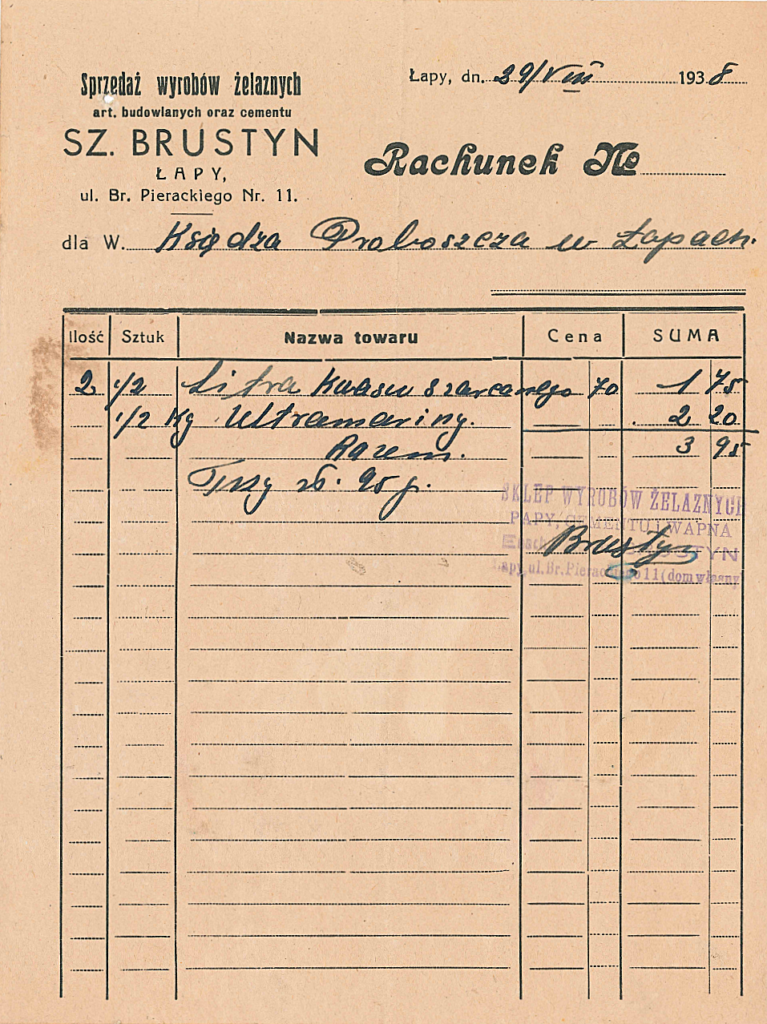 Sprzedaż wyrobów żelaznych
art. budowlanych oraz cementu
SZ. BRUSTYN
ŁAPY,
ul. Br. Pierackiego Nr. 11.
Łapy, dn. 29/VIII 1938
Rachunek №
dla W. Księdza Proboszcza w Łapach.
Ilość Sztuk Nazwa towaru Cena SUMA
2 1/2 litra Kwasu 70 1 75
1/2 Kg Ultramariny. 2 20
Razem. 3 95
Trzy zł. 95 g.
SKLEP WYROBÓW ŻELAZNYCH
PAPY, CEMENTU I WAPNA
BRUSTYN
Brustyn
Łapy, ul. Br. Pierackiego 11 (dom własny)